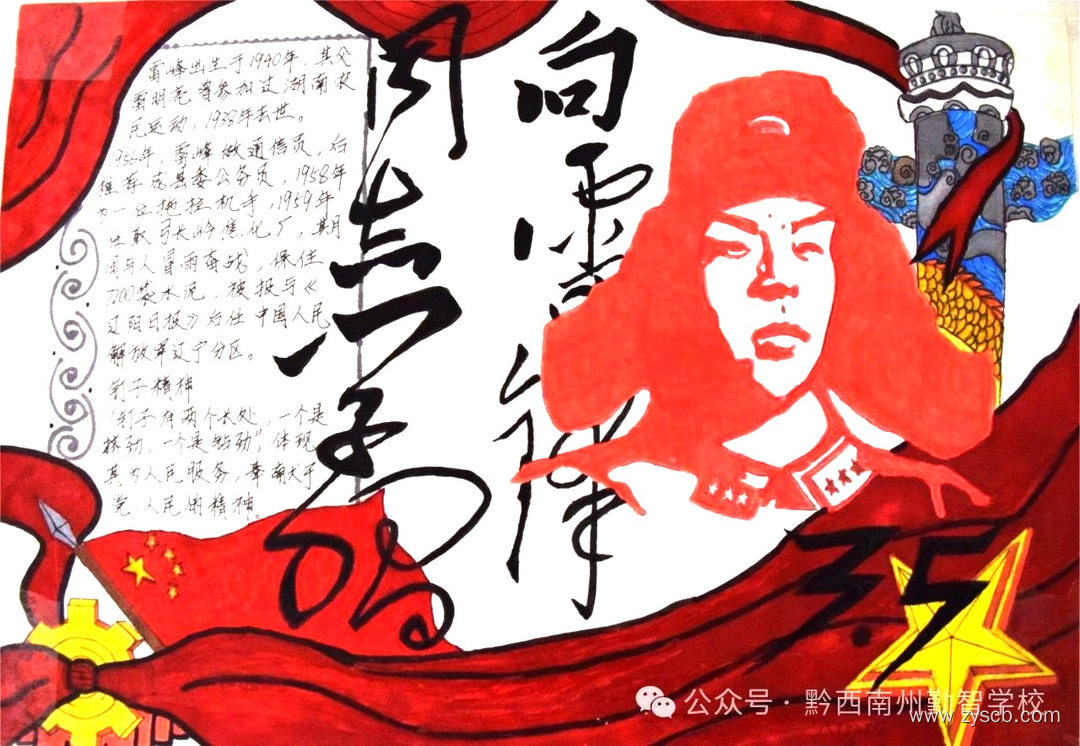 雷峰出生于1940年，其父
雷明亮曾参加过湖南农
民运动，1938年去世。
1956年，雷峰做通信员，后
推荐为县委公务员，1958年
为一位拖拉机手，1959年
任职弓长岭焦化厂，其月
间与人冒雨奋战，保住
7200袋水泥，被报与《
辽阳日报》后任中国人民
解放军辽宁分区。
钉子精神
"钉子有两个长处，一个是
挤劲，一个是钻劲"，体现
其为人民服务，奉献于
党 人民的精神。
向雷锋
同志学
3.5
公众号·黔西南州勤智学校
www.zyscb.com